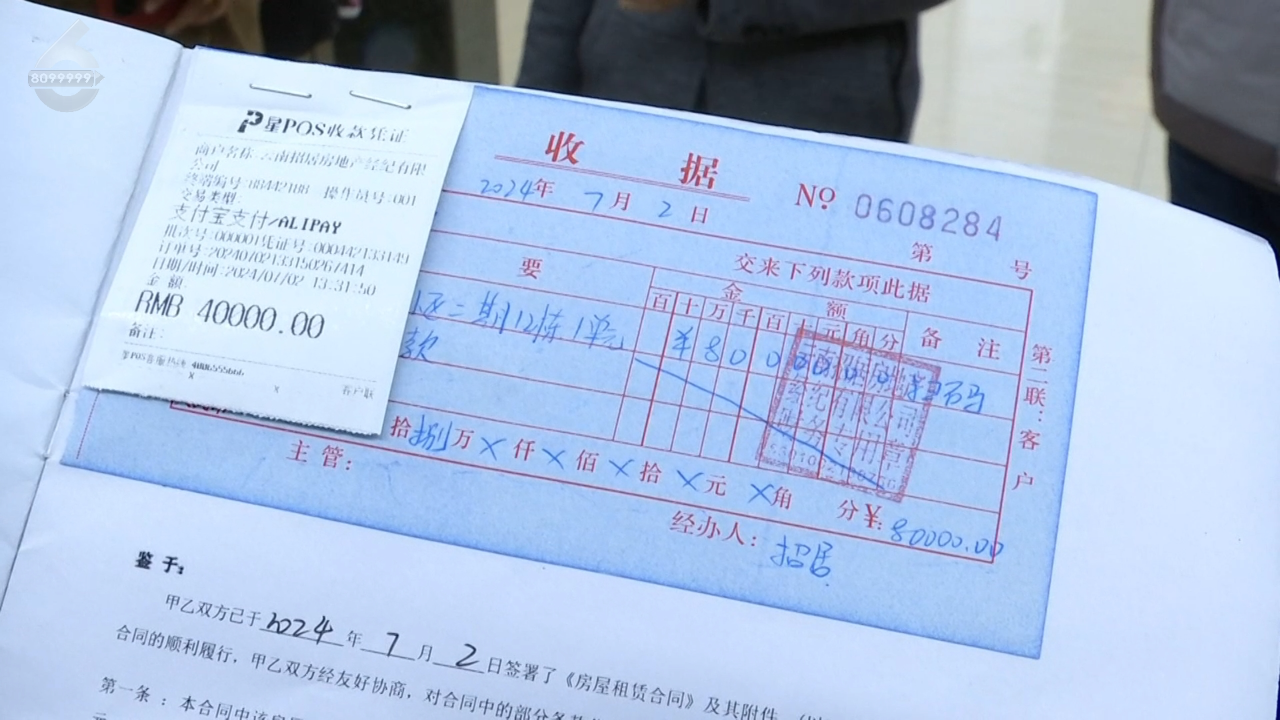 8099999
星POS收款凭证
商户名称:云南招居房地产经纪有限
公司
终端编号:88442188 操作员号:001
交易类型:
支付宝支付/ALIPAY
批次号:000001凭证号:000442133149
日期/时间:2024/07/02 13:31:50
金额:
RMB 40000.00
备注:
客户联
收 据
2024年 7月 2日
№ 0608284
第 号
交来下列款项此据
要
金 额
百十万千百十元角分
备 注
区二期12栋1单元
¥80000000
扫码
款
拾捌万×仟×佰×拾×元×角 分¥:80000.00
主管:
经办人:招居
第二联:客户
鉴于:
甲乙双方已于2024年7月2日签署了《房屋租赁合同》及其附件
合同的顺利履行,甲乙双方经友好协商,对合同中的部分条
第一条:本合同中该房